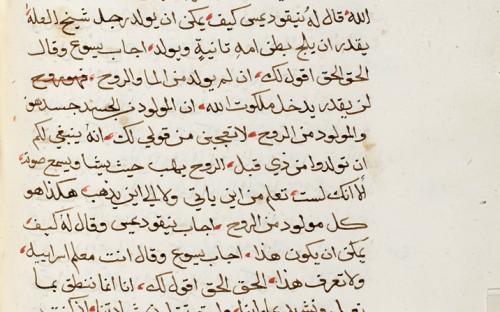 الله قال له نيقوديمس كيف يمكن ان يولد رجل شيخ العله
يقدر ان يلج بطن امه ثانية ويولد اجاب يسوع وقال
الحق الحق اقول لك ان لم يولد من الما والروح
لن يقدر يدخل ملكوت الله ان المولود من الجسد جسد هو
والمولود من الروح لا تعجبن من قولي لك انه ينبغي لكم
ان تولدوا من ذي قبل الروح يهب حيث يشا ويسمع صوته
الا انك لست تعلم من اين ياتي ولا الى اين يذهب هكذا هو
كل مولود من الروح اجاب نيقوديمس وقال له كيف
يمكن ان يكون هذا اجاب يسوع وقال انت معلم اسراييل
ولا تعرف هذا الحق الحق اقول لك انا انما ننطق بما